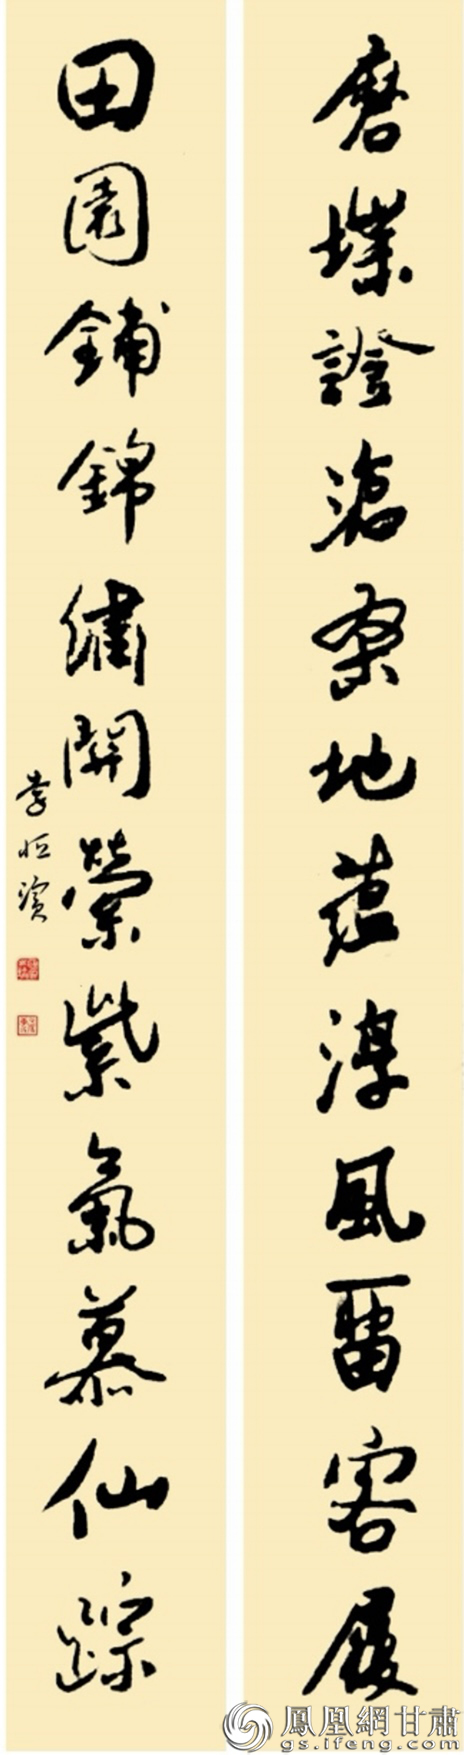 磨堞證滄桑地蘊淳風留客履
田園鋪錦繡關縈紫氣慕仙踪
李恒滨
鳳凰網甘肅
gs.ifeng.com